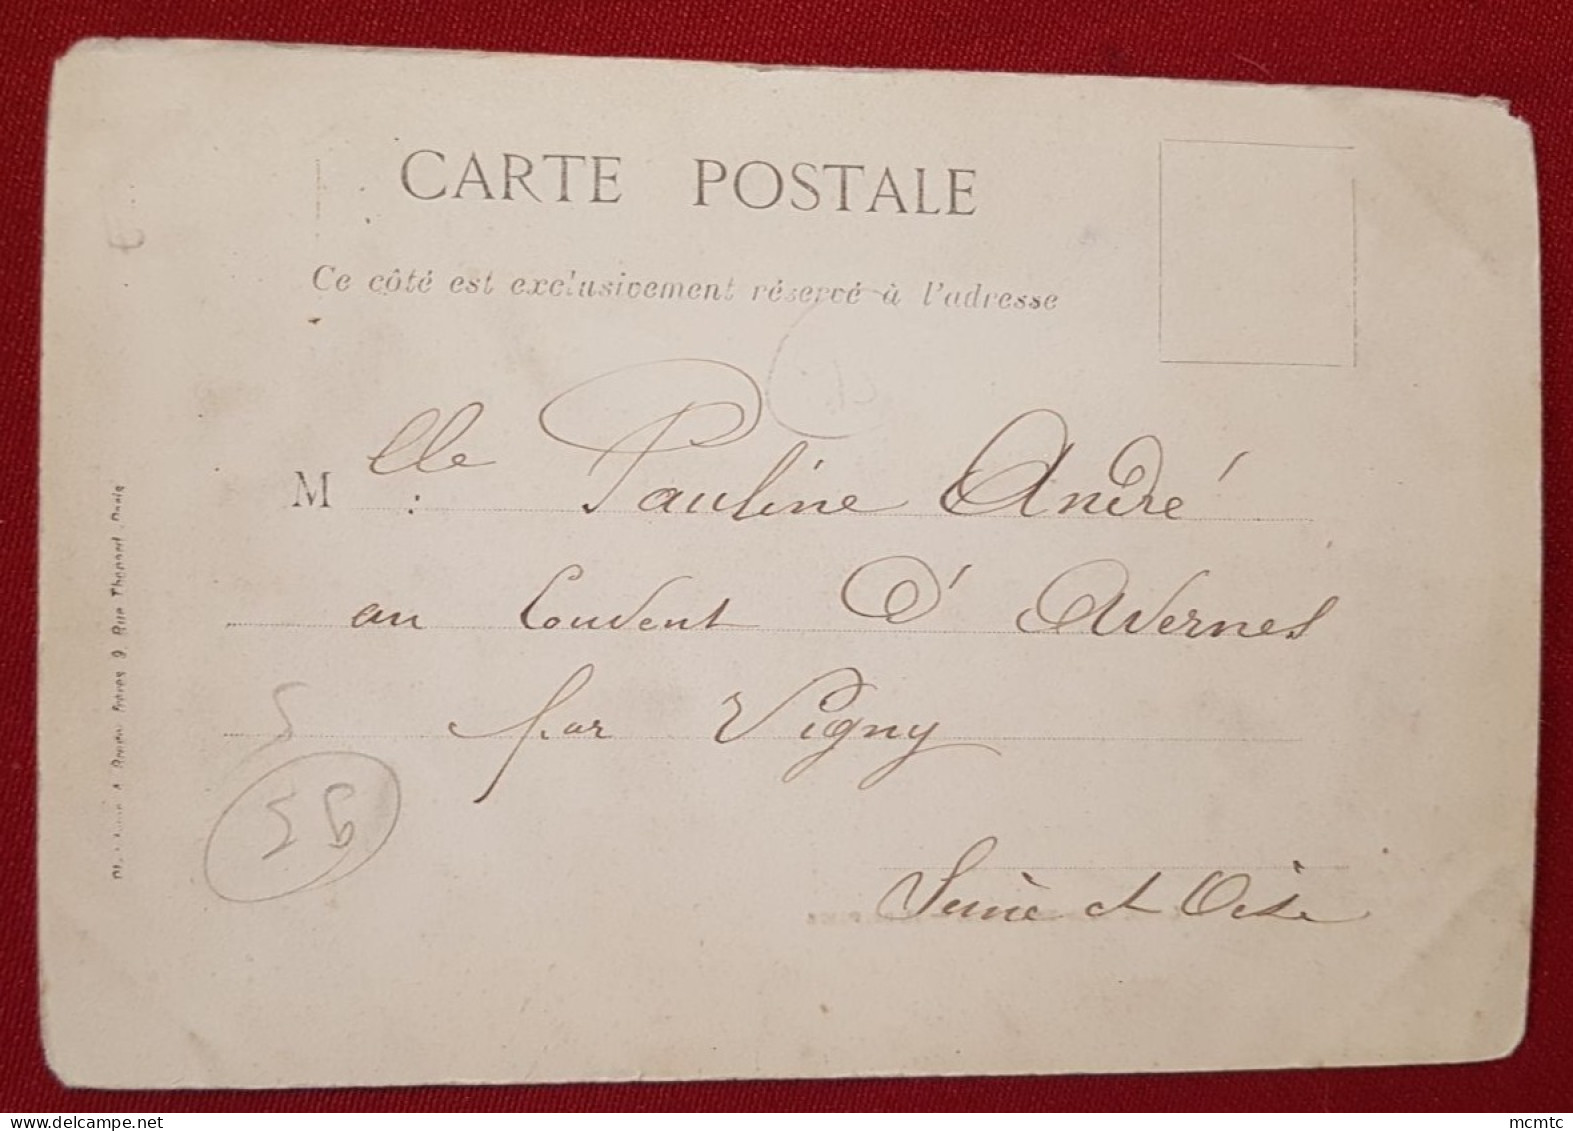 CARTE POSTALE
Ce côté est exclusivement réservé à l'adresse
Mlle : Pauline André
au Couvent d'Avernes
par Vigny
Seine et Oise
Frères 9, Rue Thénard, Paris
mcmtc